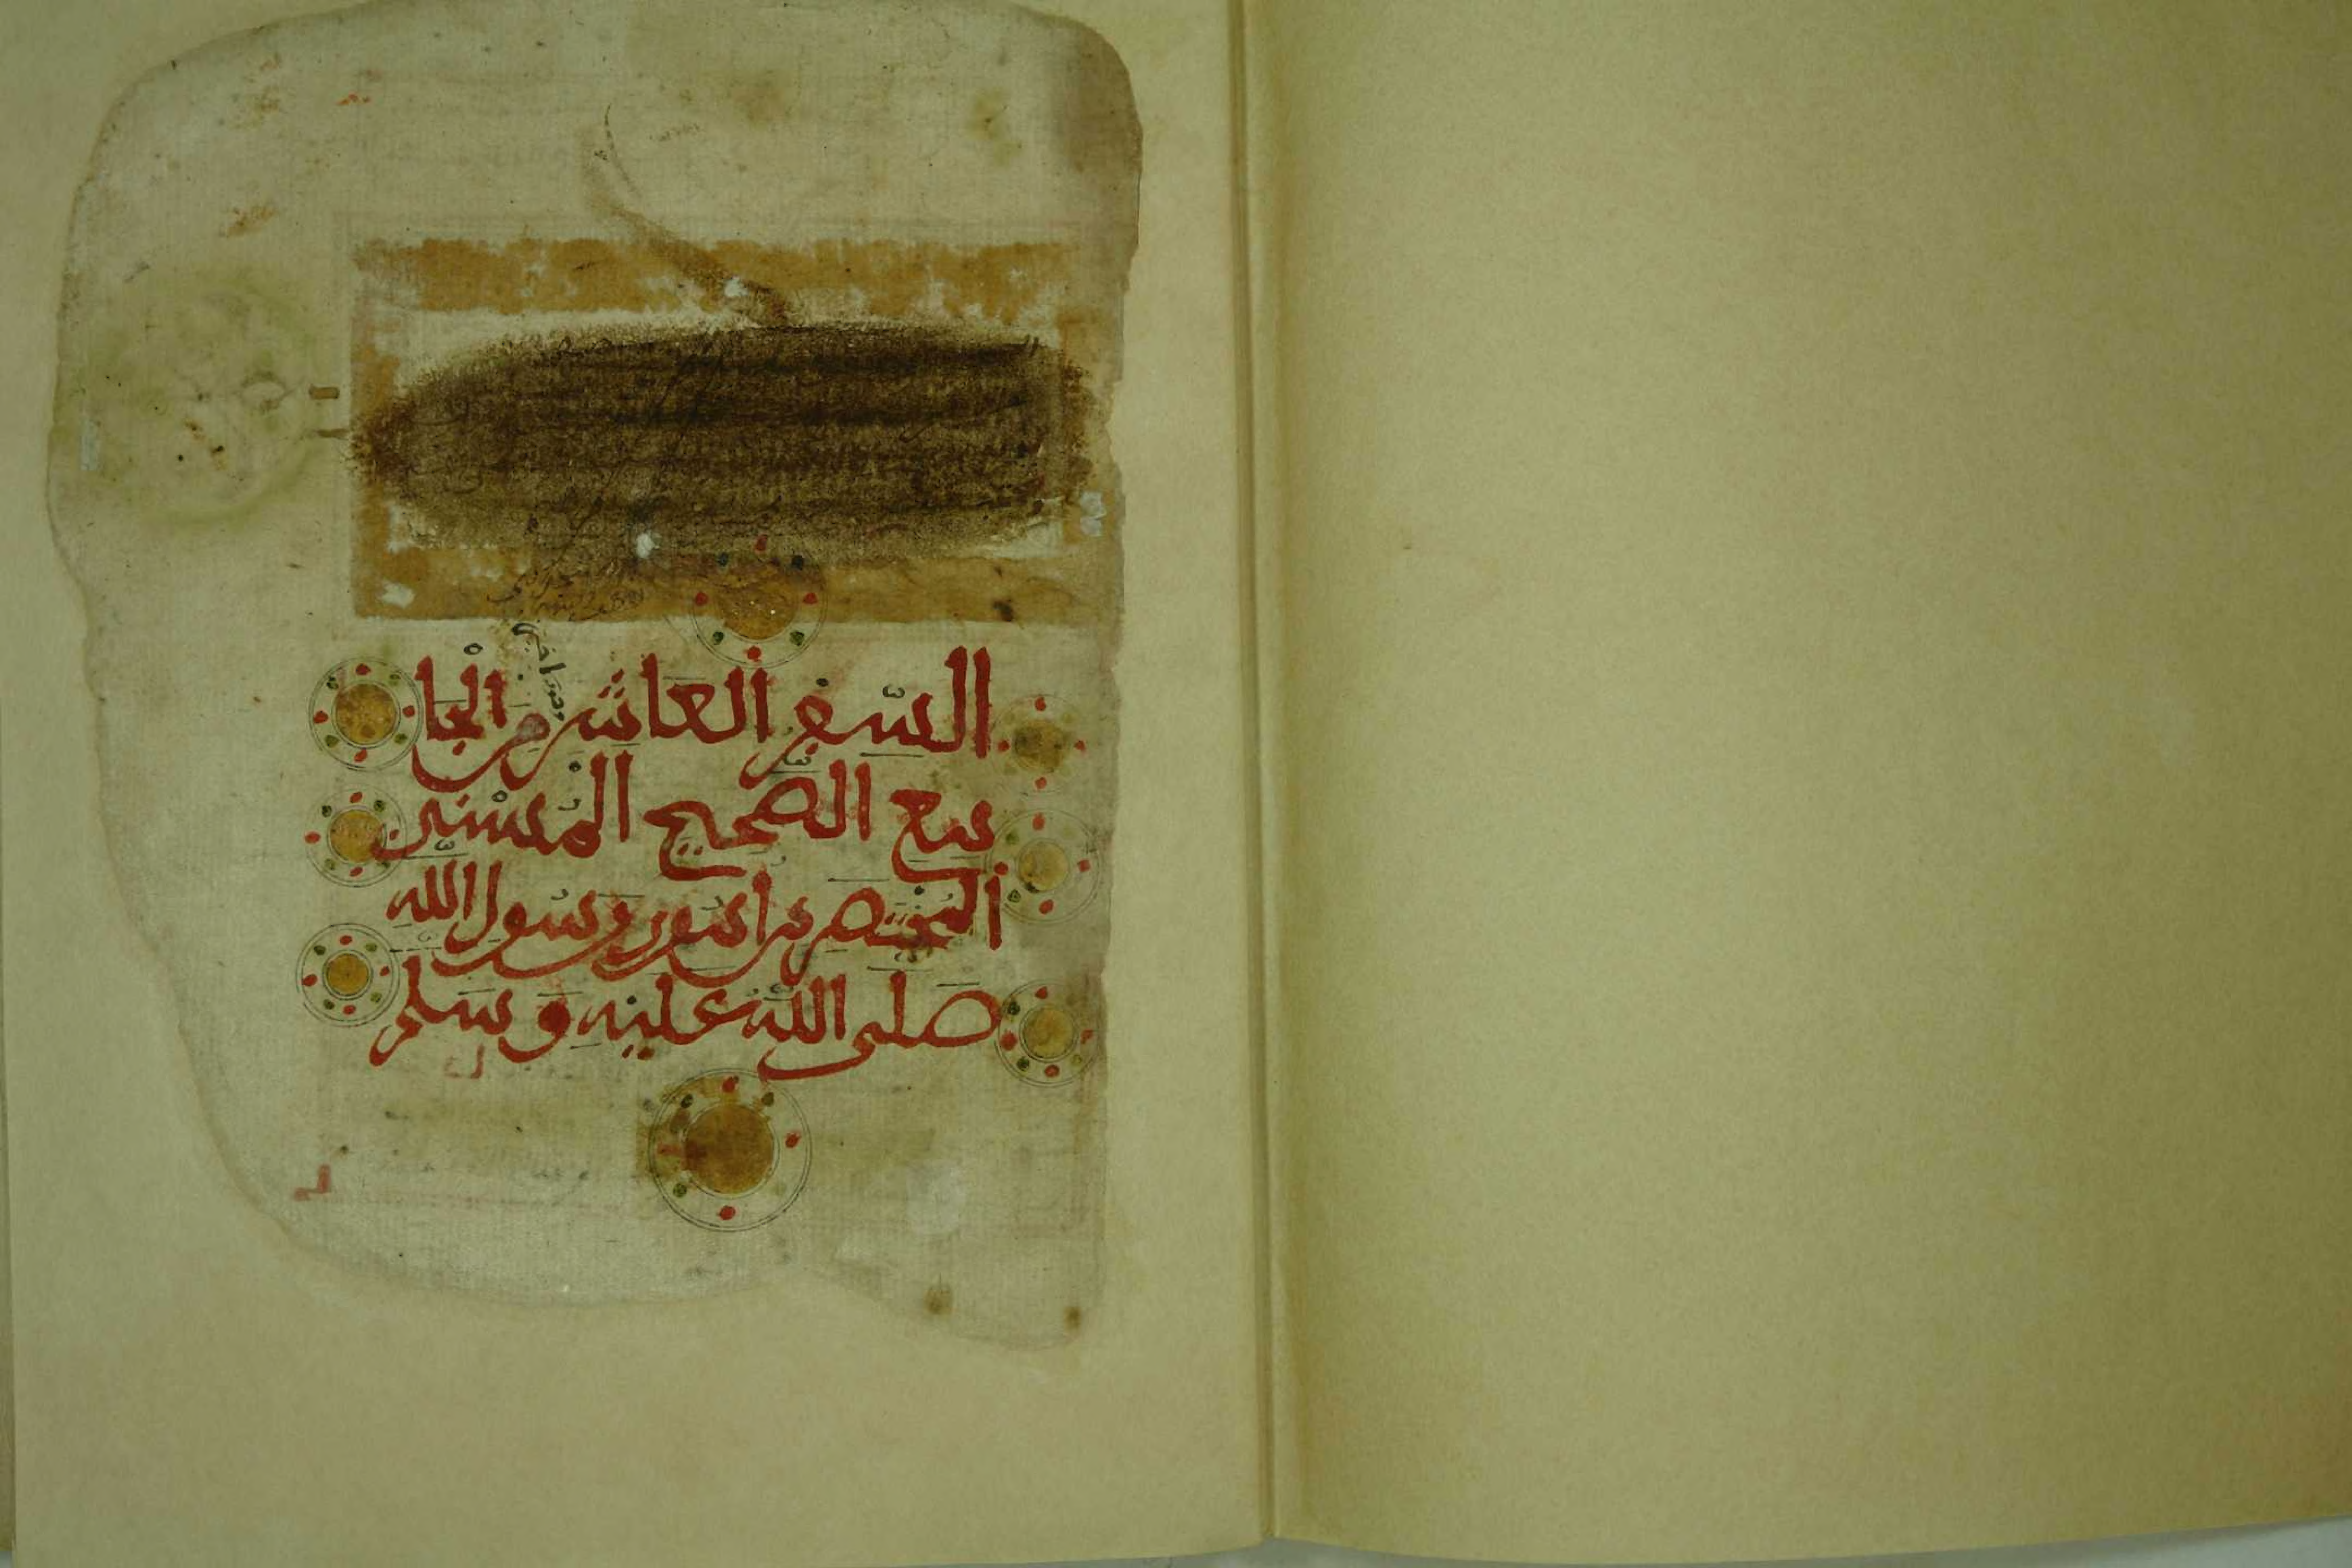 السفر العاشر من الجا
مع الصحيح المسند
المختصر من امور رسول الله
صلى الله عليه وسلم